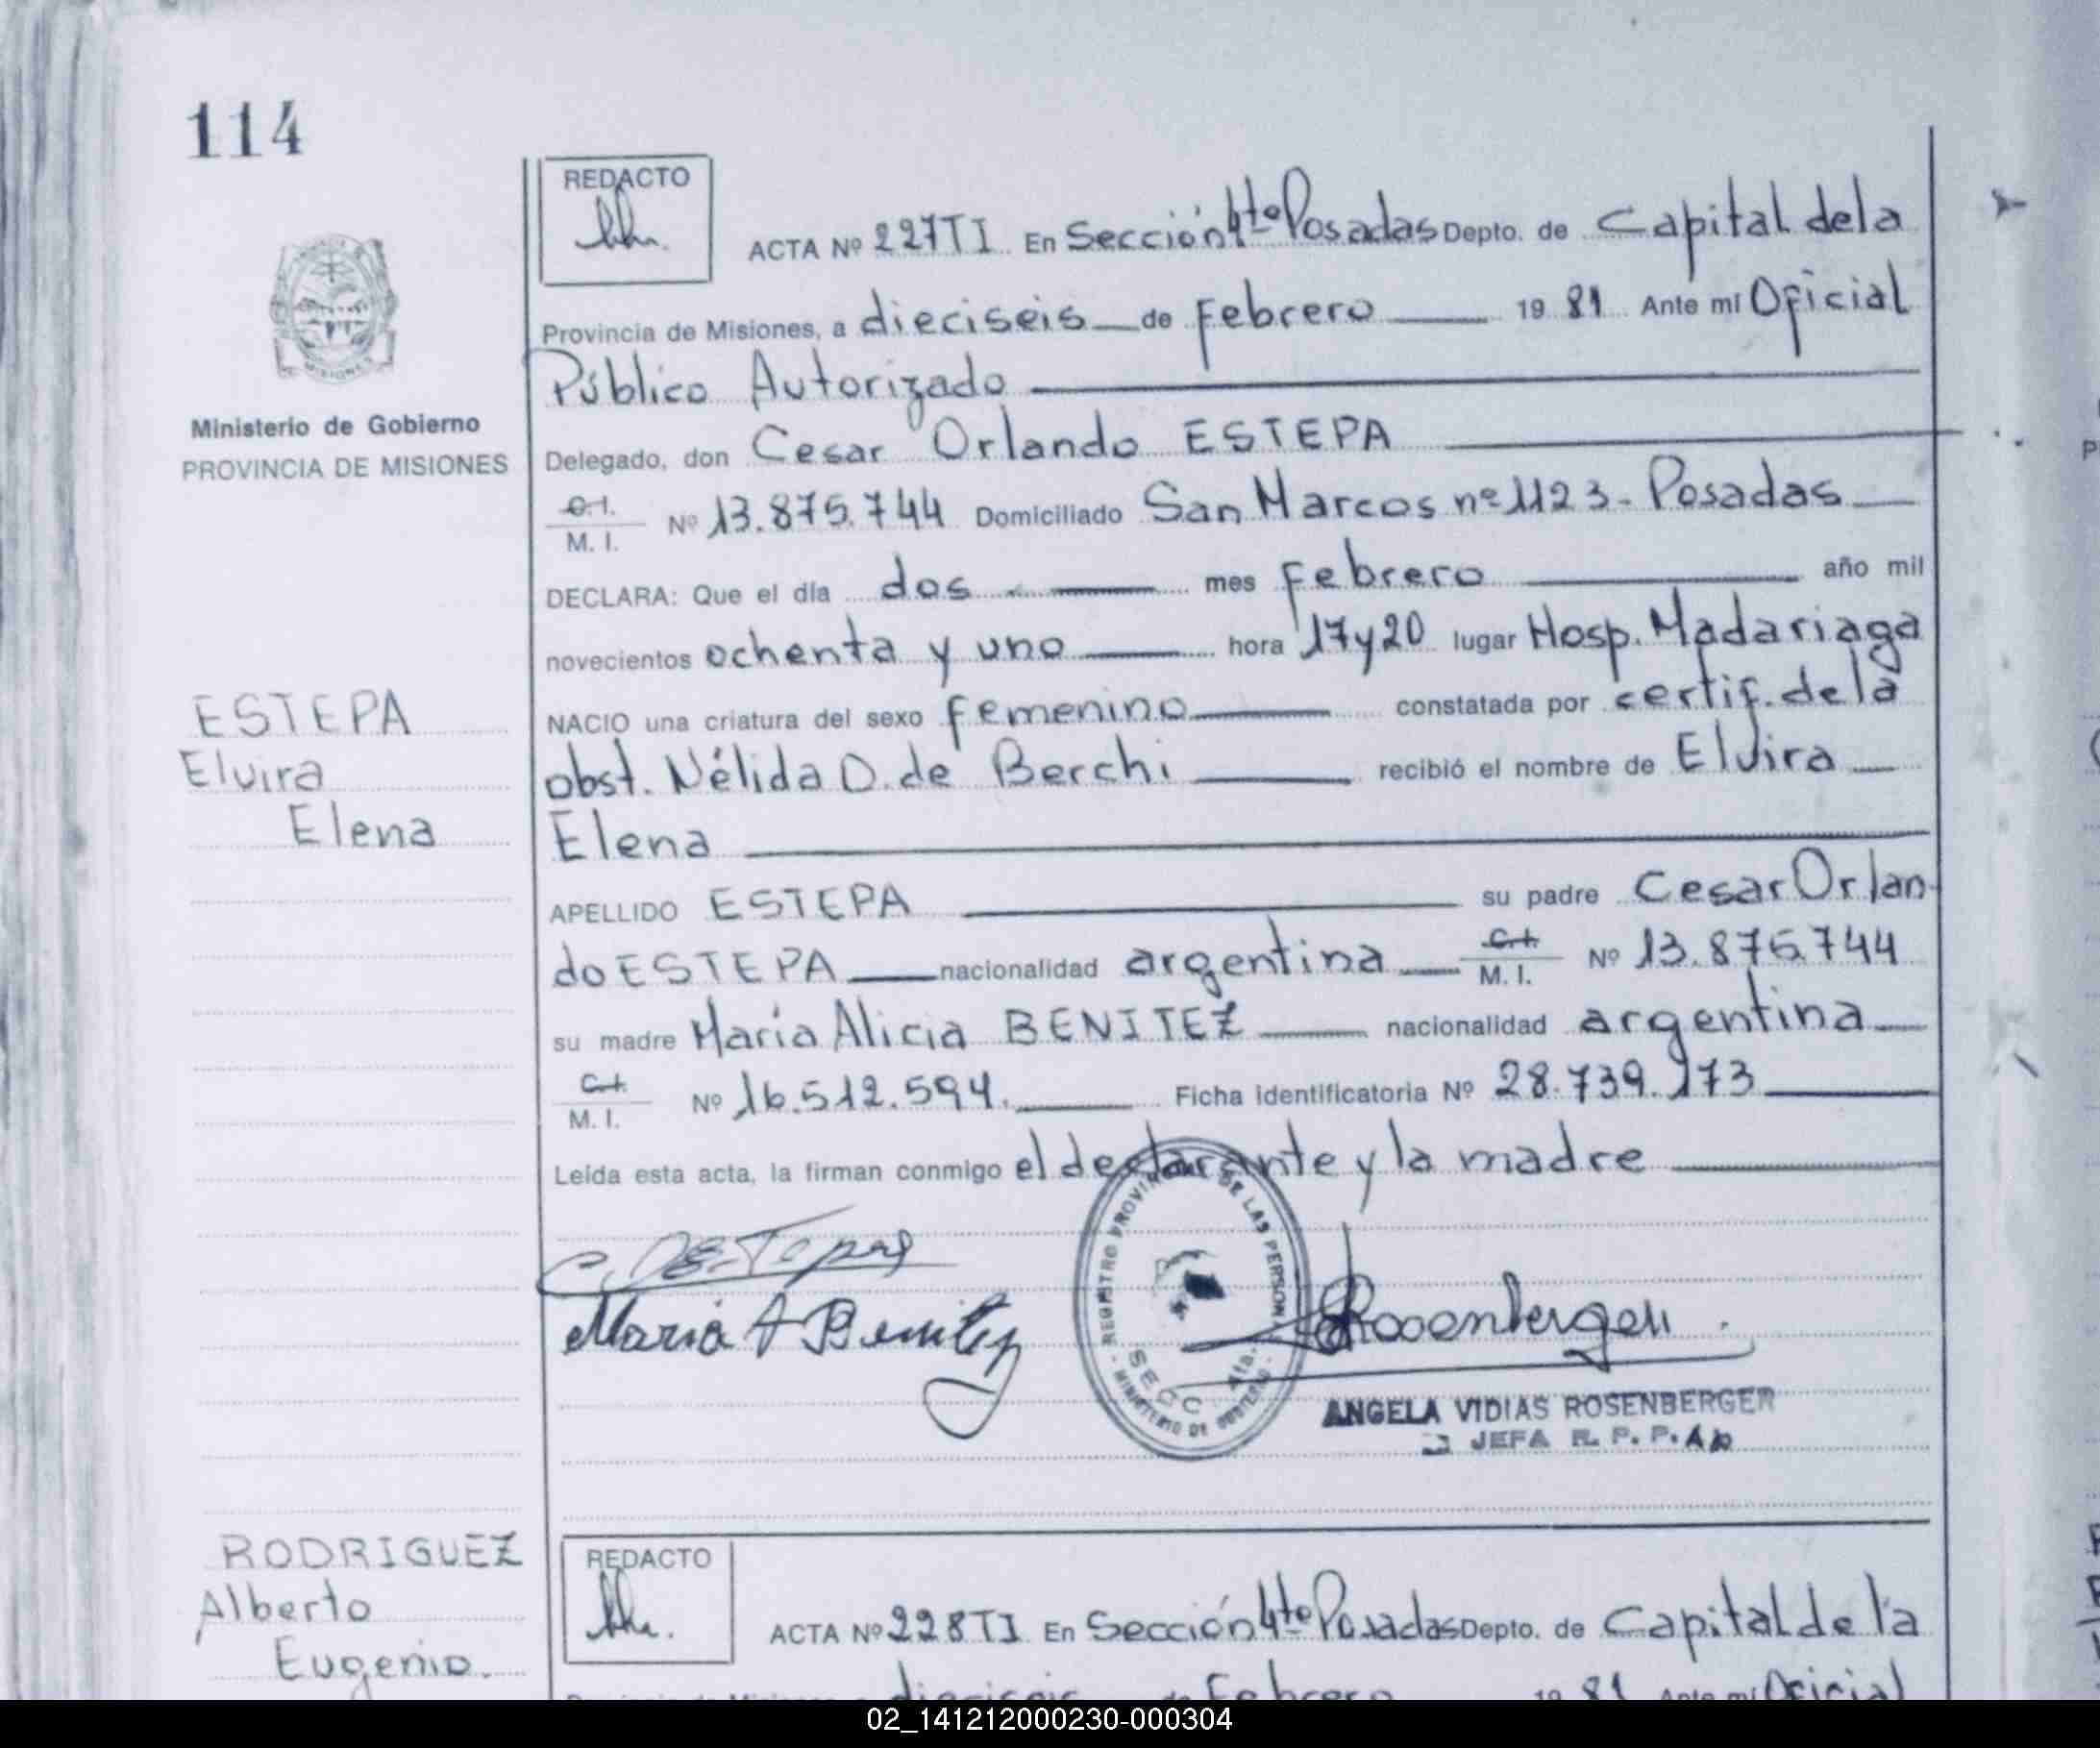 114
REDACTO
ACTA Nº 227TI En Sección 4ta Posadas Depto. de Capital de la
Provincia de Misiones, a dieciseis de Febrero 19 81 Ante mi Oficial
Público Autorizado
Ministerio de Gobierno
PROVINCIA DE MISIONES
Delegado, don Cesar Orlando ESTEPA
C.I.
M. I. Nº 13.875.744 Domiciliado San Marcos nº 1123 - Posadas
DECLARA: Que el día dos mes Febrero año mil
novecientos ochenta y uno hora 17 y 20 lugar Hosp. Madariaga
ESTEPA
Elvira
Elena
NACIO una criatura del sexo femenino constatada por certif. de la
obst. Nélida D. de Berchi recibió el nombre de Elvira
Elena
APELLIDO ESTEPA su padre Cesar Orlan-
do ESTEPA nacionalidad argentina C.I.
M. I. Nº 13.875.744
su madre María Alicia BENITEZ nacionalidad argentina
C.I.
M. I. Nº 16.512.594. Ficha identificatoria Nº 28.739.173
Leída esta acta, la firman conmigo el declarante y la madre
Maria A Benitez
REGISTRO PROVINCIAL DE LAS PERSONAS
SECC 4ta.
MINISTERIO DE GOBIERNO
Rosenberger
ANGELA VIDIAS ROSENBERGER
JEFA R. P. P.
RODRIGUEZ
Alberto
Eugenio.
REDACTO
ACTA Nº 228TI En Sección 4to Posadas Depto. de Capital de la
dieciseis de Febrero 19 81 Ante mi Oficial
02_141212000230-000304